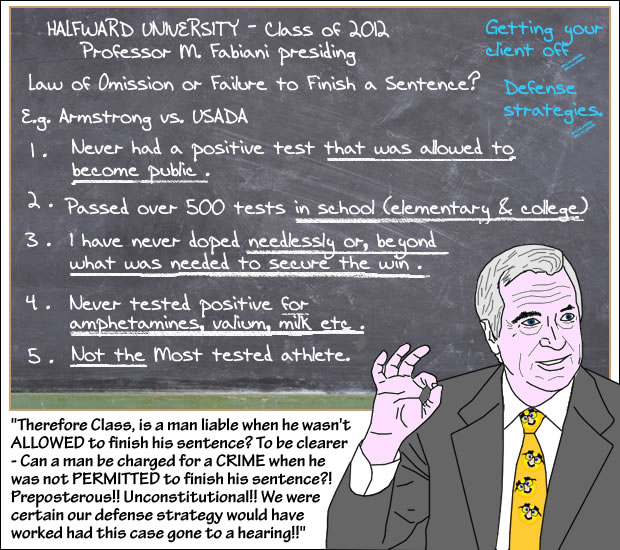 HALFWARD UNIVERSITY - Class of 2012
Professor M. Fabiani presiding
Getting your
client off
Defense
strategies.
Law of Omission or Failure to Finish a Sentence?
E.g. Armstrong vs. USADA
1. Never had a positive test that was allowed to
become public.
2. Passed over 500 tests in school (elementary & college)
3. I have never doped needlessly or, beyond
what was needed to secure the win.
4. Never tested positive for
amphetamines, valium, milk etc.
5. Not the Most tested athlete.
"Therefore Class, is a man liable when he wasn't
ALLOWED to finish his sentence? To be clearer
- Can a man be charged for a CRIME when he
was not PERMITTED to finish his sentence?!
Preposterous!! Unconstitutional!! We were
certain our defense strategy would have
worked had this case gone to a hearing!!"